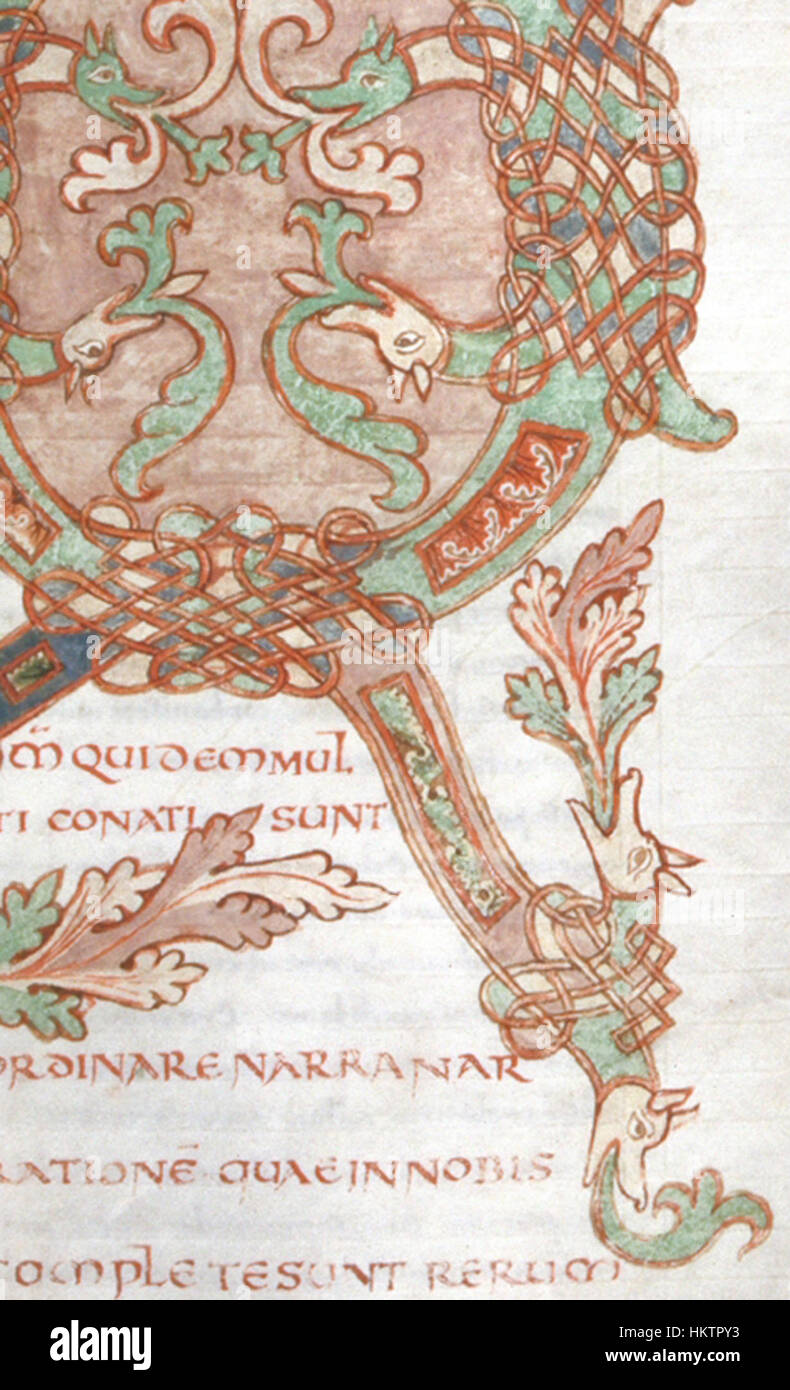 m̃ QUIDEM MUL
TI CONATI SUNT
ORDINARE NARRA NAR
RATIONĒ QUAE IN NOBIS
COMPLETE SUNT RERUM
alamy
Image ID: HKTPY3
www.alamy.com